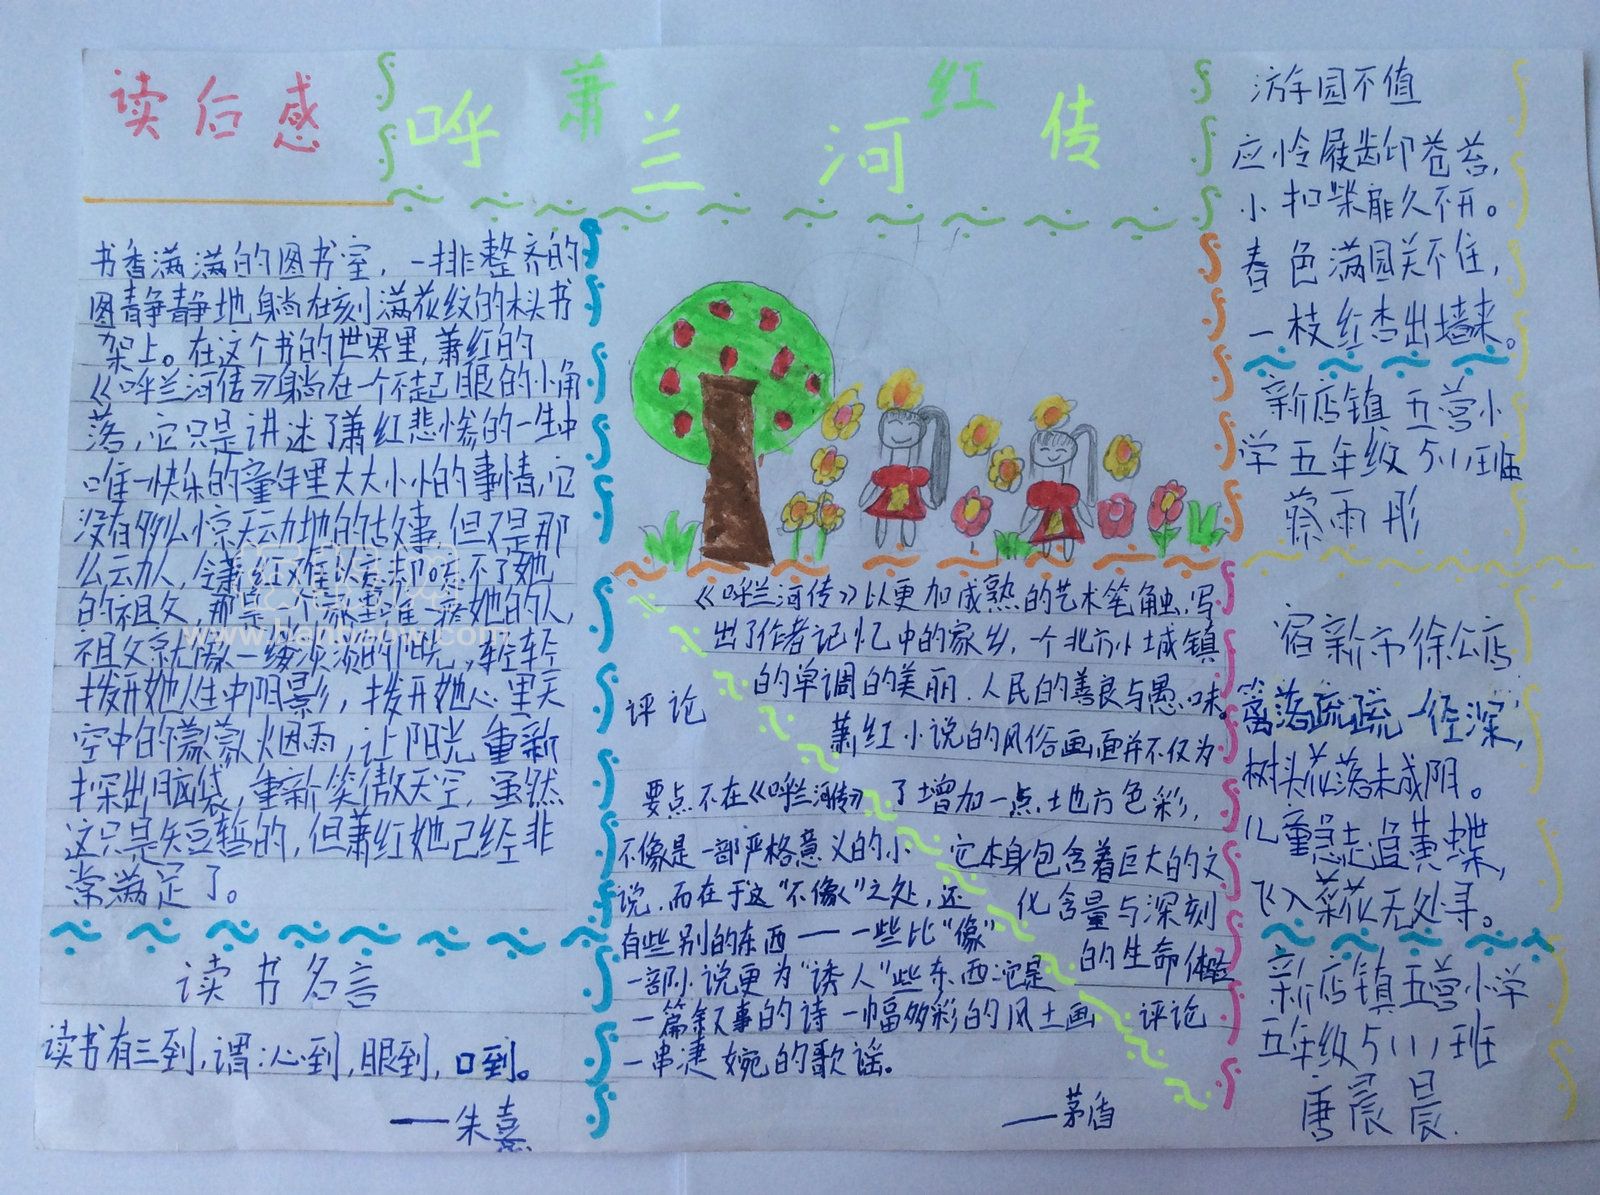 读后感
呼兰河传
萧红
书香满满的图书室，一排整齐的
图静静地躺在刻满花纹的木头书
架上。在这个书的世界里，萧红的
《呼兰河传》躺在一个不起眼的小角
落，它只是讲述了萧红悲惨的一生中
唯一快乐的童年里大大小小的事情，它
没有多么惊天动地的故事，但又是那
么动人，令萧红难以忘却
不了她
的祖父，那是
她的人，
祖父就像一缕淡淡的阳光，轻轻
拨开她人生中阴影，拨开她心里天
空中的蒙蒙烟雨，让阳光重新
探出脑袋，重新笑傲天空，虽然
这只是短暂的，但萧红她已经非
常满足了。
读书名言
读书有三到，谓：心到，眼到，口到。
——朱熹
《呼兰河传》以更加成熟的艺术笔触，写
出了作者记忆中的家乡，一个北方小城镇
的单调的美丽、人民的善良与愚昧。
萧红小说的风俗画面并不仅为
了增加一点土地方色彩，
它本身包含着巨大的文
化含量与深刻
的生命体验
评论
评论
要点不在《呼兰河传》
不像是一部严格意义的小
说，而在于这“不像”之处，还
有些别的东西——一些比“像”
一部小说更为“诱人”些东西：它是
一篇叙事的诗一幅多彩的风土画
一串凄婉的歌谣。
——茅盾
游园不值
应怜屐齿印苍苔，
小扣柴扉久不开。
春色满园关不住，
一枝红杏出墙来。
新店镇五营小
学五年级5111班
蔡雨彤
宿新市徐公店
篱落疏疏一径深，
树头花落未成阴。
儿童急走追黄蝶，
飞入菜花无处寻。
新店镇五营小学
五年级5111班
唐晨晨